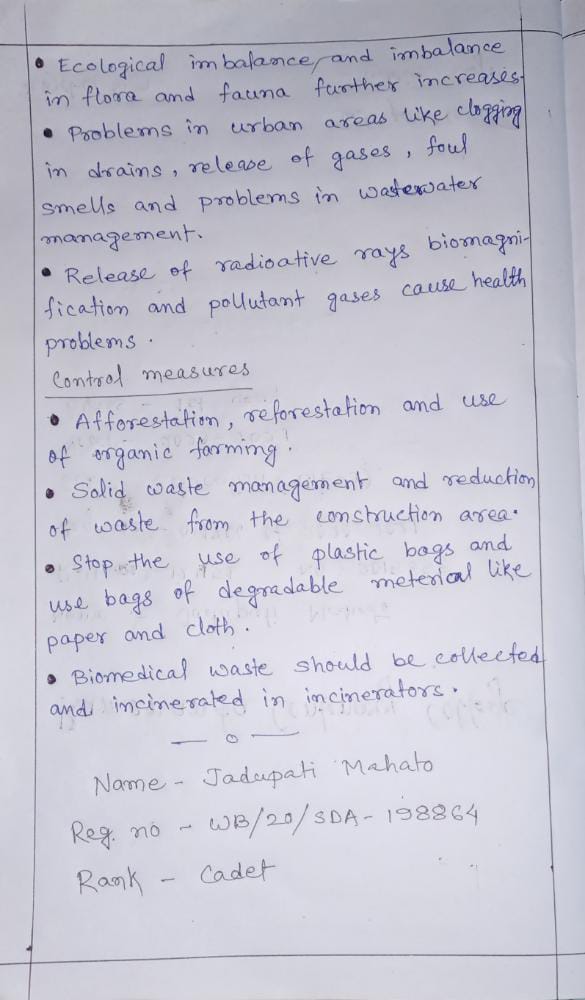 • Ecological imbalance, and imbalance
in flora and fauna further increases.
• Problems in urban areas like clogging
in drains, release of gases, foul
smells and problems in wastewater
management.
• Release of radioative rays biomagni-
fication and pollutant gases cause health
problems.
Control measures
• Afforestation, reforestation and use
of organic farming.
• Solid waste management and reduction
of waste from the construction area.
• Stop the use of plastic bags and
use bags of degradable meterical like
paper and cloth.
• Biomedical waste should be collected
and incinerated in incinerators.
— o —
Name - Jadupati Mahato
Reg. no - WB/20/SDA - 198864
Rank - Cadet